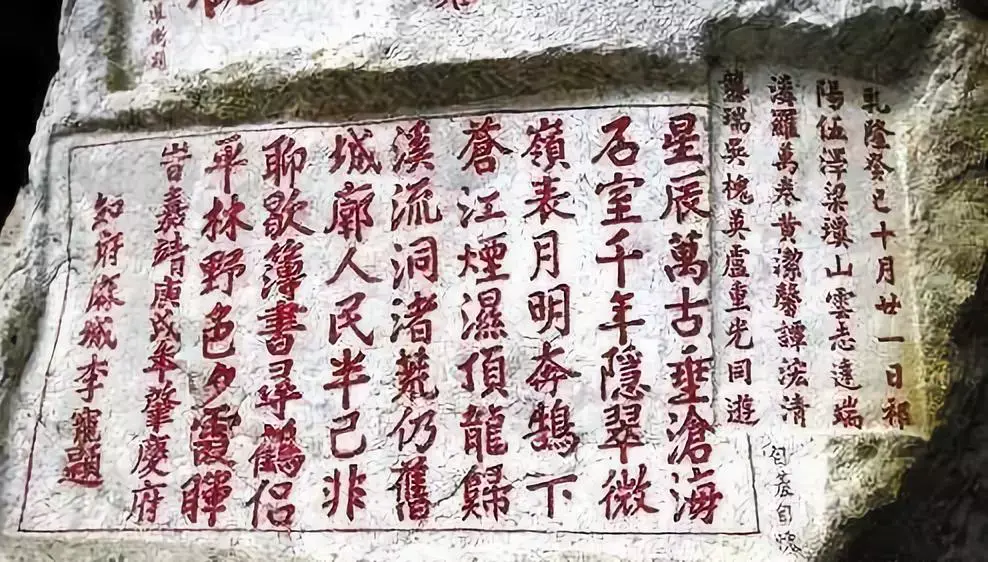 乳隆癸巳十月廿一日祁
陽伍澤梁瓊山雲志達端
溪羅萬卷黃潔馨譚浤清
龔瑞吳槐英盧重光同遊
星辰萬古垂滄海
石室千年隱翠微
嶺表月明奔鵠下
蒼江煙濕頂龍歸
溪流洞渚蕘仍舊
城廓人民半已非
聊歇簿書尋鶴侶
平林野色夕霞暉
旹嘉靖庚戌年肇慶府
知府麻城李寵題